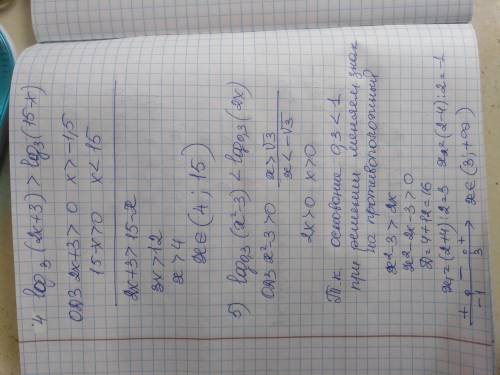 4 log₃(2x+3) > log₃(15-x)
ОДЗ 2x+3>0 x>-1,5
15-x>0 x<15
2x+3>15-x
3x>12
x>4
x∈(4; 15)
5) log₀,₃(x²-3) < log₀,₃(2x)
ОДЗ x²-3>0 x>√3
x<-√3
2x>0 x>0
Т.к основание 0,3<1
при решении меняем знак
на противоположный
x²-3>2x
x²-2x-3>0
D=4+12=16
x₁=(2+4):2=3 x₂=(2-4):2=-1
+ - + x∈(3;+∞)
-1 3